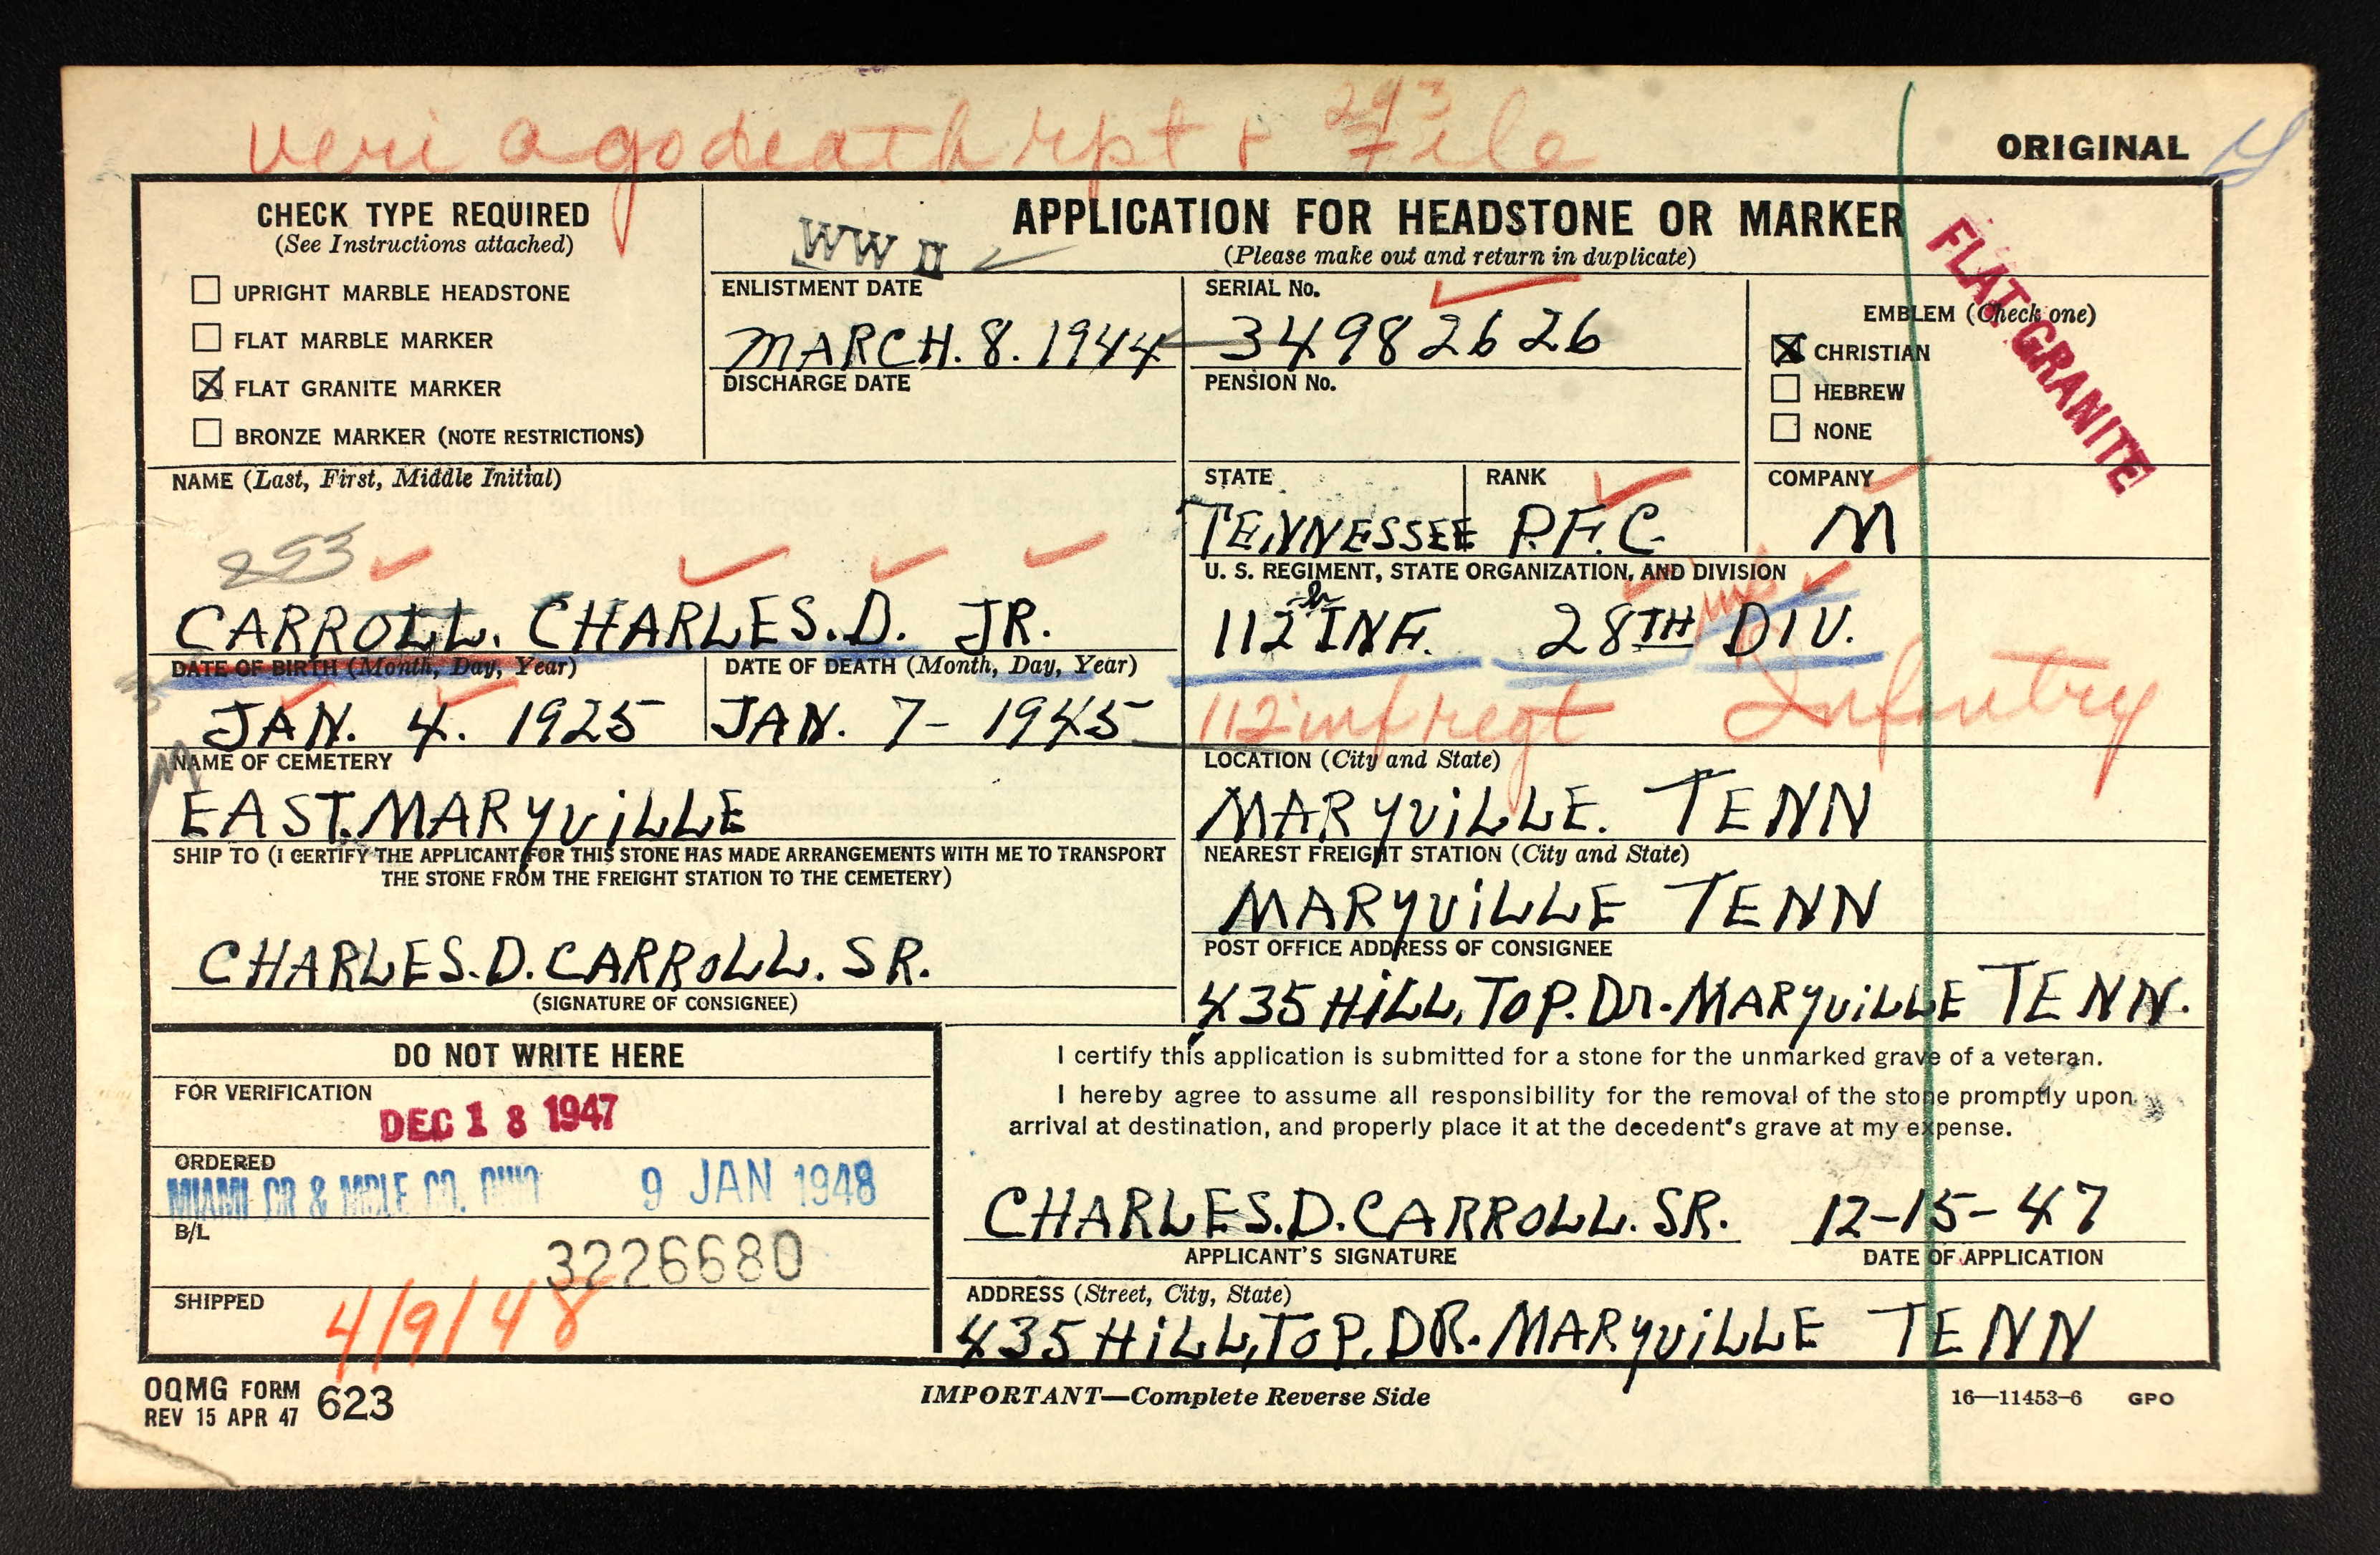 veri ago death rpt & 293 File
ORIGINAL
CHECK TYPE REQUIRED
(See Instructions attached)
☐ UPRIGHT MARBLE HEADSTONE
☐ FLAT MARBLE MARKER
☒ FLAT GRANITE MARKER
☐ BRONZE MARKER (NOTE RESTRICTIONS)
WW II
APPLICATION FOR HEADSTONE OR MARKER
(Please make out and return in duplicate)
FLAT GRANITE
ENLISTMENT DATE
MARCH. 8. 1944
DISCHARGE DATE
SERIAL No.
34982626
PENSION No.
EMBLEM (Check one)
☒ CHRISTIAN
☐ HEBREW
☐ NONE
NAME (Last, First, Middle Initial)
253
CARROLL. CHARLES. D. JR.
STATE
TENNESSEE
RANK
P.F.C.
COMPANY
M
U. S. REGIMENT, STATE ORGANIZATION, AND DIVISION
112th INF. 28TH inf DIV.
112 inf regt Infantry
DATE OF BIRTH (Month, Day, Year)
JAN. 4. 1925
DATE OF DEATH (Month, Day, Year)
JAN. 7- 1945
NAME OF CEMETERY
EAST. MARYVILLE
LOCATION (City and State)
MARYVILLE. TENN
SHIP TO (I CERTIFY THE APPLICANT FOR THIS STONE HAS MADE ARRANGEMENTS WITH ME TO TRANSPORT
THE STONE FROM THE FREIGHT STATION TO THE CEMETERY)
CHARLES. D. CARROLL. SR.
(SIGNATURE OF CONSIGNEE)
NEAREST FREIGHT STATION (City and State)
MARYVILLE TENN
POST OFFICE ADDRESS OF CONSIGNEE
435 HILL, TOP. Dr. MARYVILLE TENN.
DO NOT WRITE HERE
FOR VERIFICATION
DEC 18 1947
ORDERED
MIAMI GR & MBLE CO. OHIO 9 JAN 1948
B/L
3226680
SHIPPED
4/9/48
I certify this application is submitted for a stone for the unmarked grave of a veteran.
I hereby agree to assume all responsibility for the removal of the stone promptly upon
arrival at destination, and properly place it at the decedent's grave at my expense.
CHARLES. D. CARROLL. SR. 12-15-47
APPLICANT'S SIGNATURE DATE OF APPLICATION
ADDRESS (Street, City, State)
435 HILL, TOP. DR. MARYVILLE TENN
OQMG FORM 623
REV 15 APR 47
IMPORTANT—Complete Reverse Side
16—11453-6 GPO